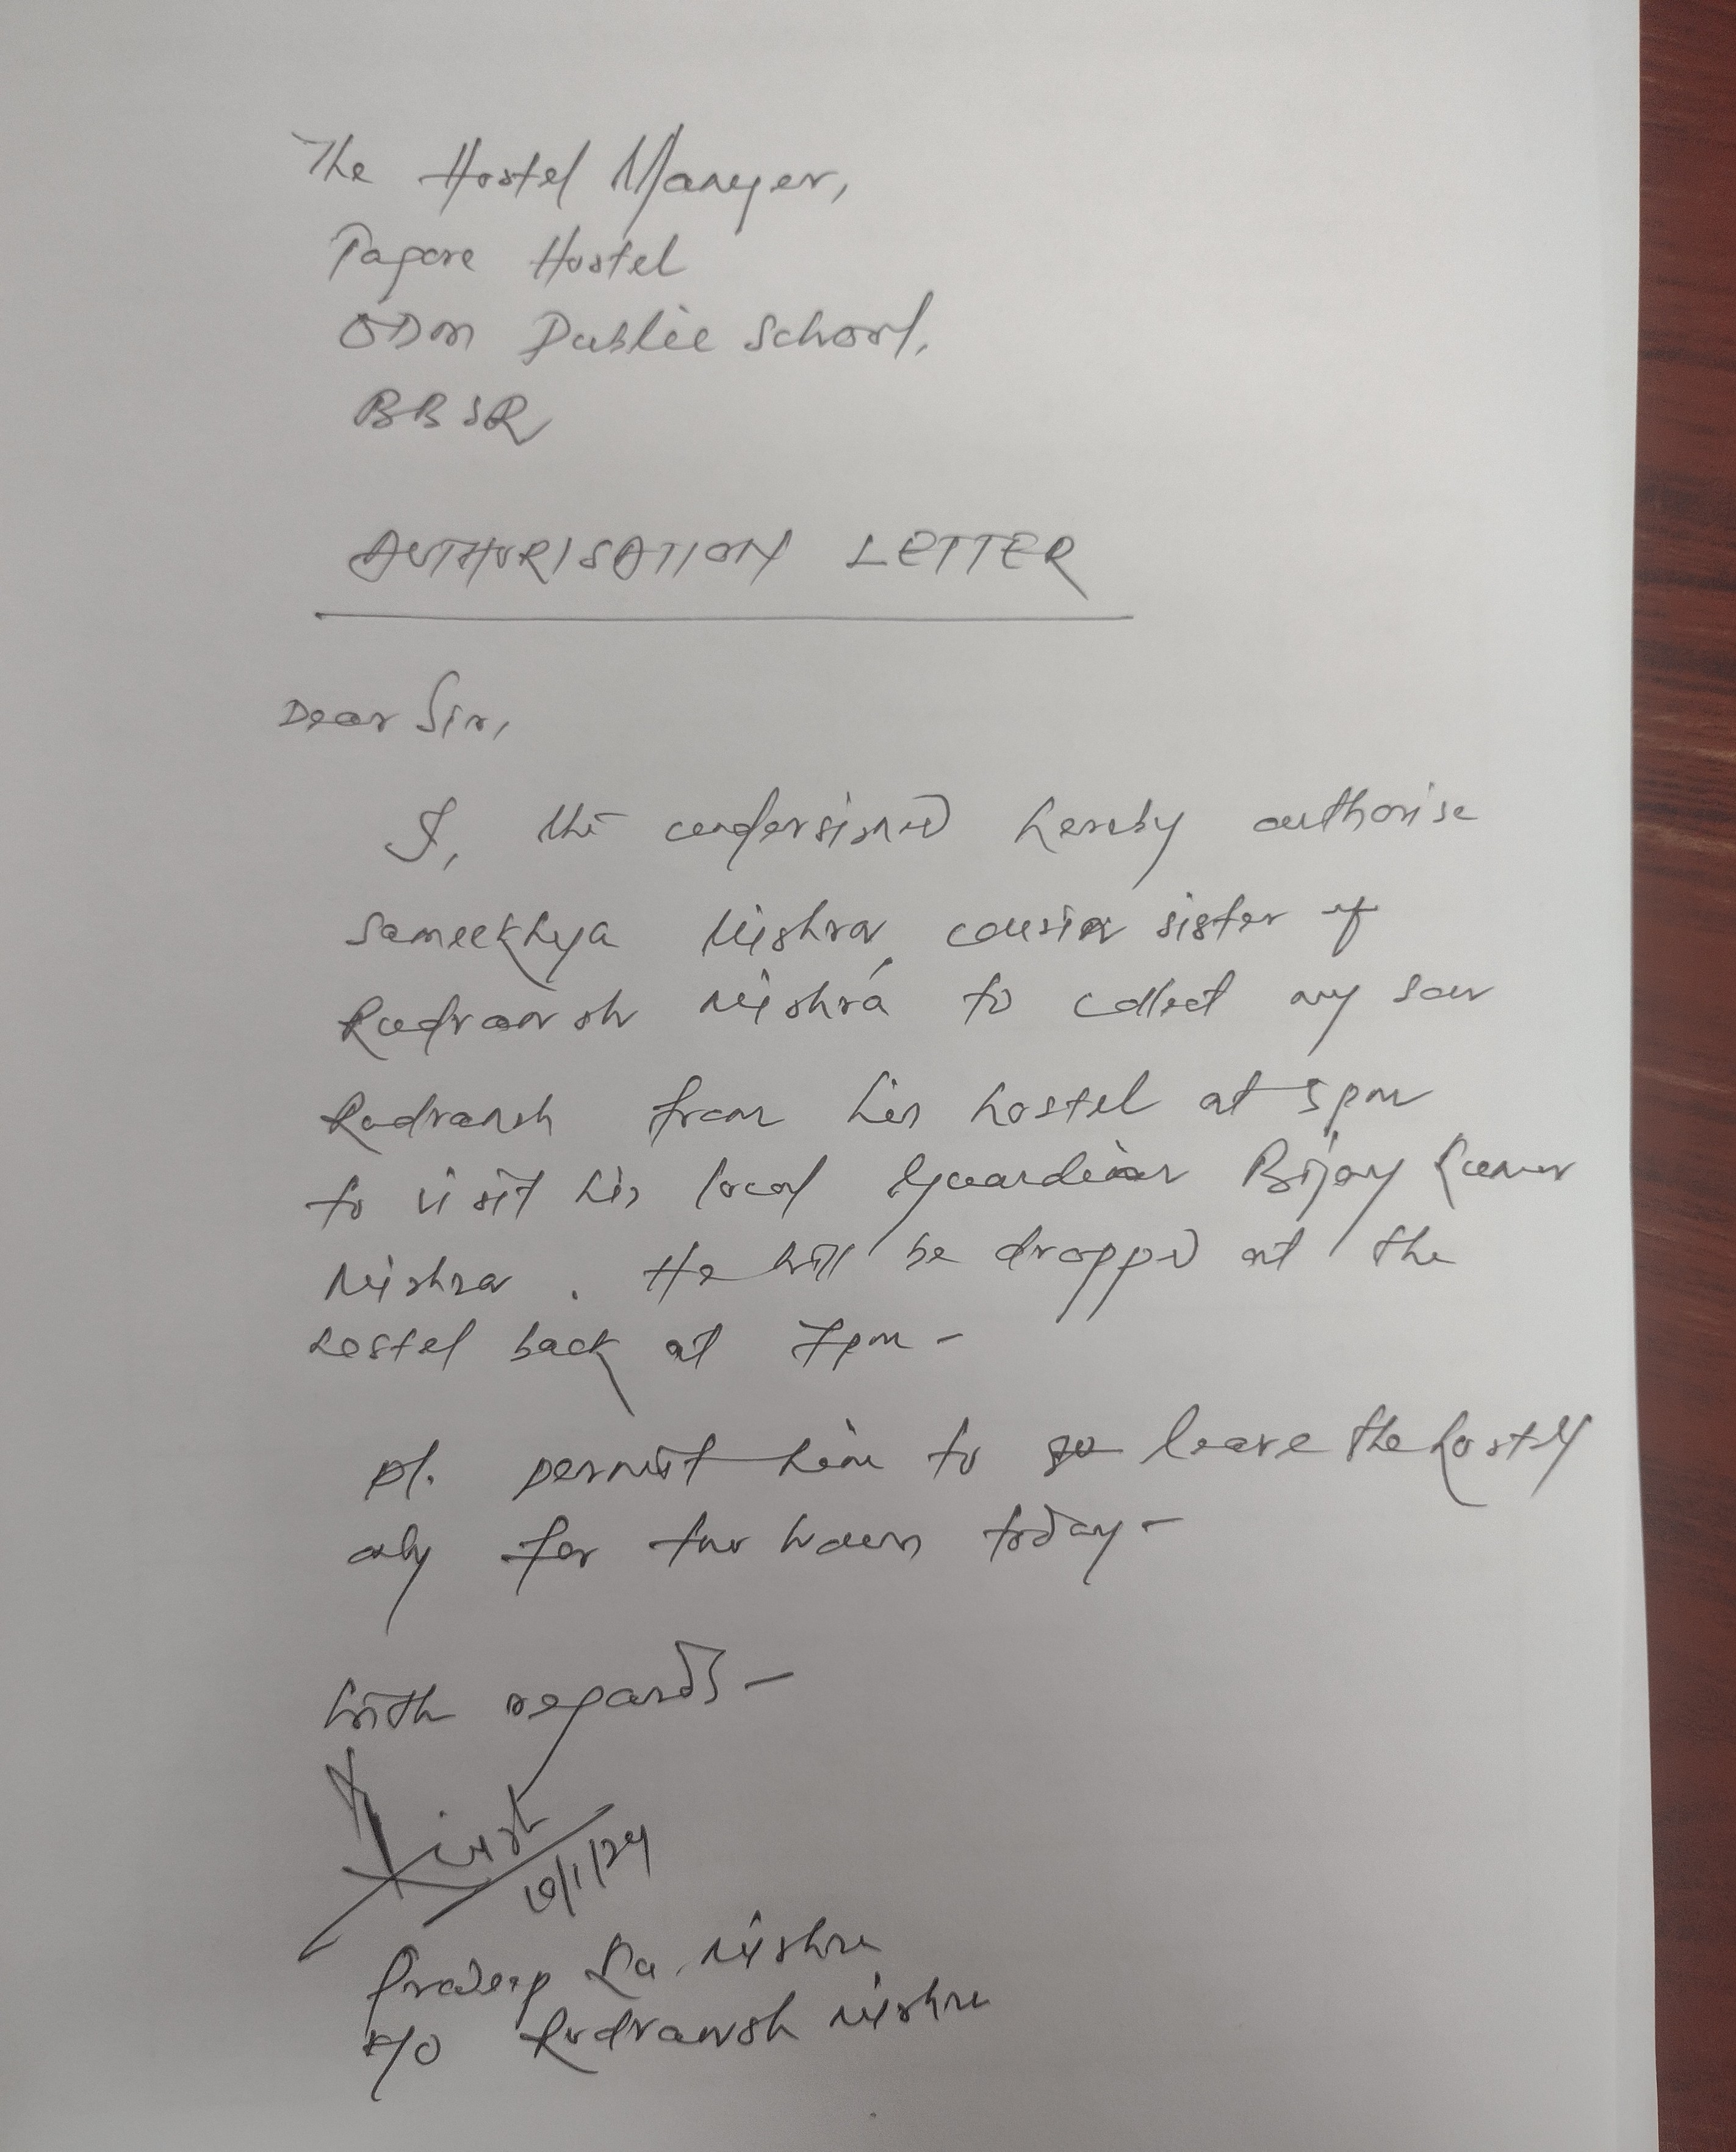 The Hostel Manager,
Tagore Hostel
ODM Public School,
BBSR
AUTHORISATION LETTER
Dear Sir,
I, the undersigned hereby authorise
Sameekhya Mishra, cousin sister of
Rudransh Mishra to collect my son
Rudransh from his hostel at 5pm
to visit his local guardian Bijay Kumar
Mishra. He will be dropped at the
hostel back at 7pm -
pl. permit him to go leave the hostel
only for two hours today -
With regards -
10/1/24
Pradeep Ku. Mishra
F/O Rudransh Mishra